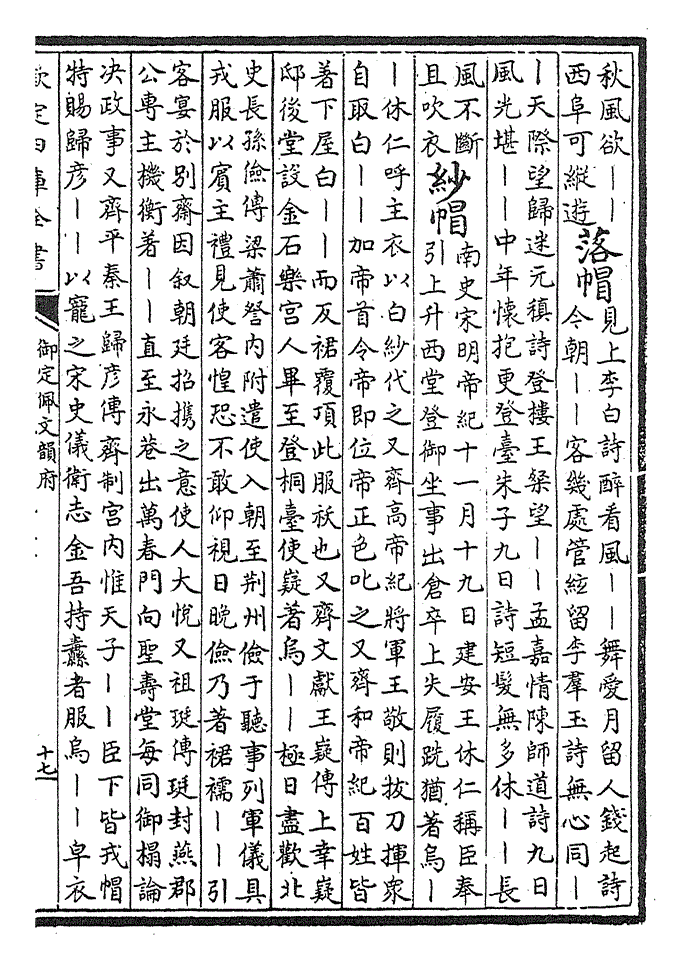 秋風欲｜｜
西阜可縱遊
落帽
見上李白詩醉看風｜｜舞愛月留人錢起詩
今朝｜｜客幾處管絃留李羣玉詩無心同｜
｜天際望歸迷元稹詩登樓王粲望｜｜孟嘉情陳師道詩九日
風光堪｜｜中年懷抱更登臺朱子九日詩短髮無多休｜｜長
風不斷
且吹衣
紗帽
南史宋明帝紀十一月十九日建安王休仁稱臣奉
引上升西堂登御坐事出倉卒上失履跣猶著烏｜
｜休仁呼主衣以白紗代之又齊高帝紀將軍王敬則拔刀揮衆
自取白｜｜加帝首令帝即位帝正色叱之又齊和帝紀百姓皆
著下屋白｜｜而反裙覆頂此服祅也又齊文獻王嶷傳上幸嶷
邸後堂設金石樂宮人畢至登桐臺使嶷著烏｜｜極日盡歡北
史長孫儉傳梁蕭詧內附遣使入朝至荆州儉于聽事列軍儀具
戎服以賓主禮見使客惶恐不敢仰視日晚儉乃著裙襦｜｜引
客宴於別齋因叙朝廷招攜之意使人大悅又祖珽傳珽封燕郡
公專主機衡著｜｜直至永巷出萬春門向聖壽堂每同御榻論
决政事又齊平秦王歸彥傳齊制宮內惟天子｜｜臣下皆戎帽
特賜歸彥｜｜以寵之宋史儀衛志金吾持纛者服烏｜｜皁衣
欽定四庫全書
御定佩文韻府
十七